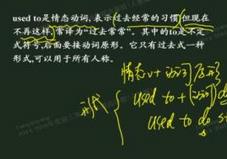 used to是情态动词,表示过去经常的习惯,但现在
不再这样,常译为“过去常常”。其中的to是不定
式符号,后面要接动词原形。它只有过去式一种
形式,可以用于所有人称。
情态v+动词原形
used to +(动词)
used to do s